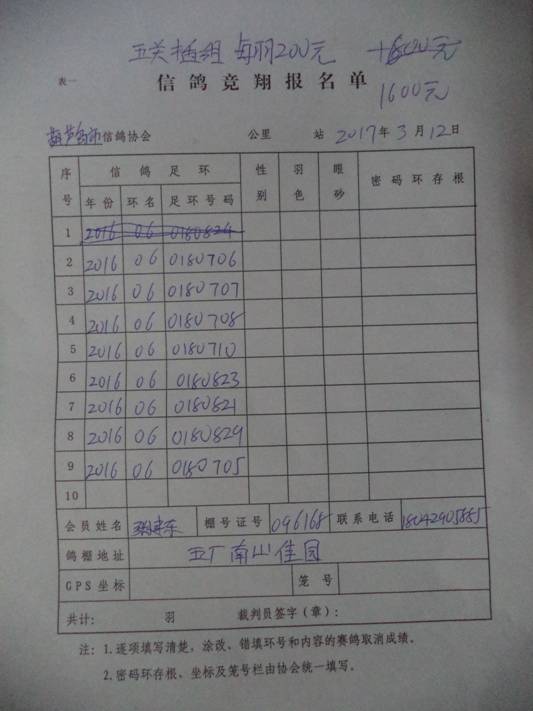 五关插组 每羽200元 1800元
表一
信鸽竞翔报名单
1600元
葫芦岛市信鸽协会 公里 站 2017年3月12日
序号 信鸽足环 性别 羽色 眼砂 密码环存根
年份 环名 足环号码
1 2016 06 0180824
2 2016 06 0180706
3 2016 06 0180707
4 2016 06 0180708
5 2016 06 0180710
6 2016 06 0180823
7 2016 06 0180821
8 2016 06 0180829
9 2016 06 0180705
10
会员姓名 棚号证号 096168 联系电话 18042905885
鸽棚地址 五厂南山佳园
GPS坐标 笼号
共计: 羽 裁判员签字(章):
注:1.逐项填写清楚,涂改、错填环号和内容的赛鸽取消成绩。
2.密码环存根、坐标及笼号栏由协会统一填写。